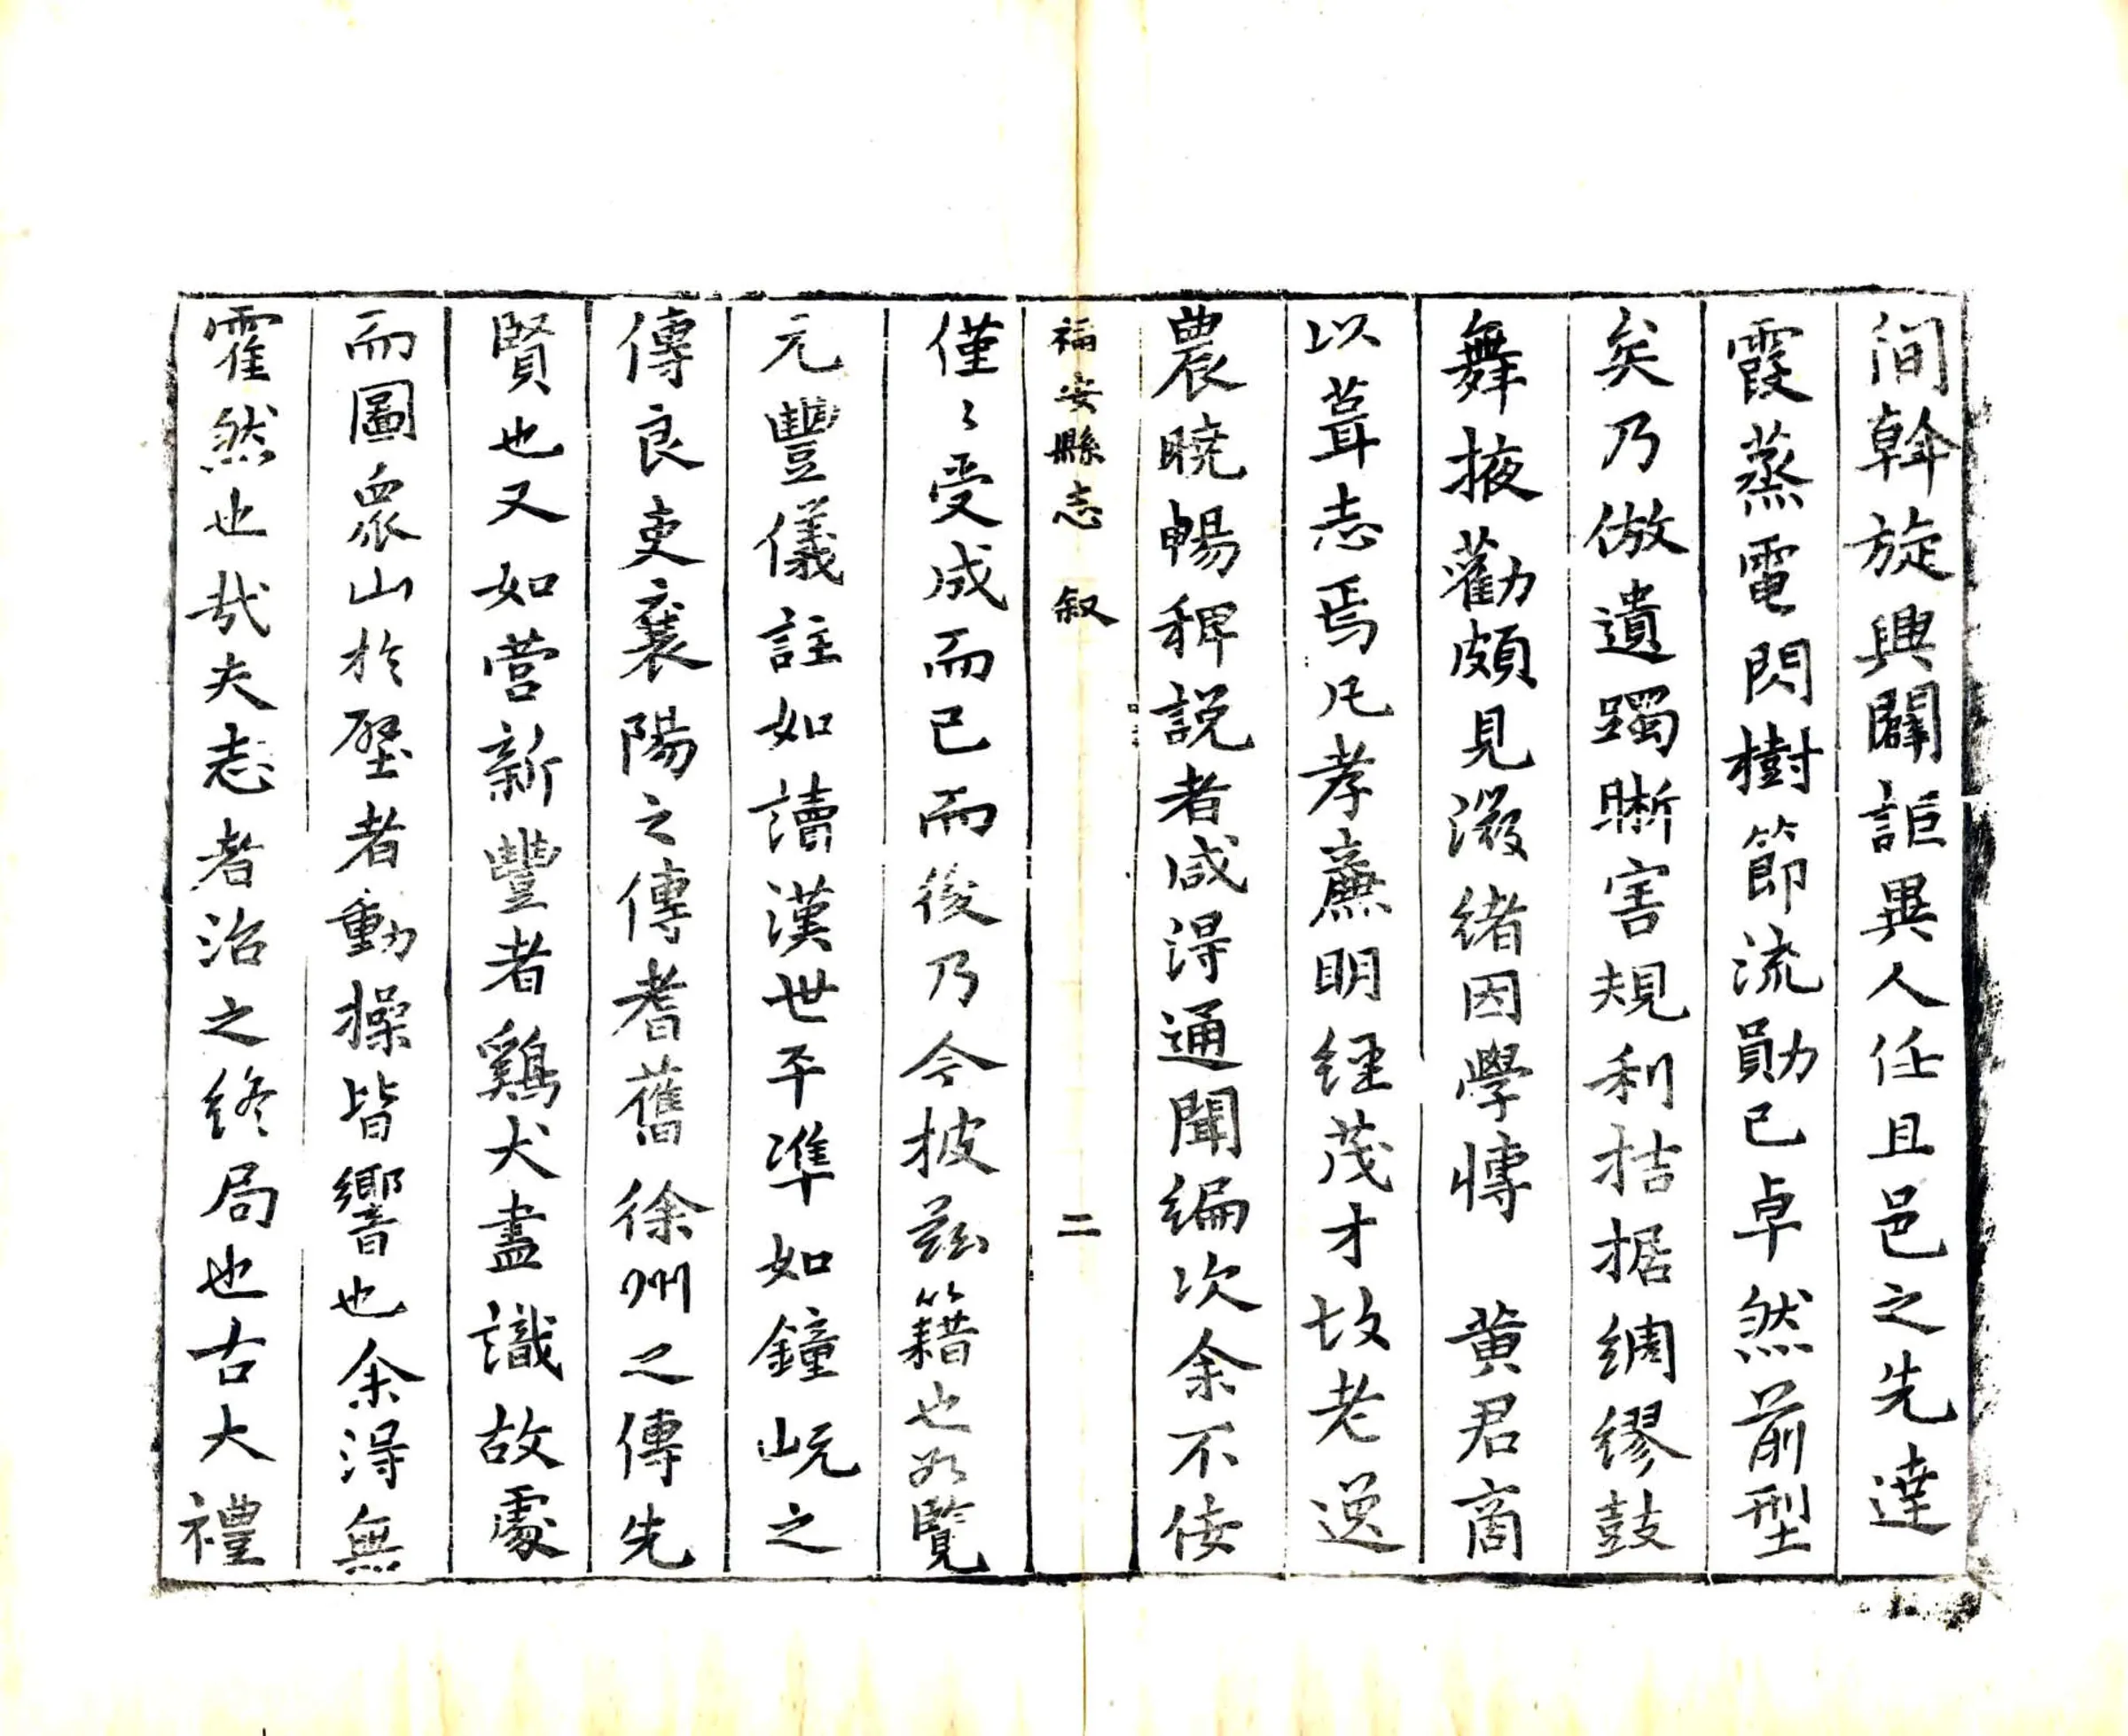 間斡旋興闢詎異人任且邑之先達
霞蒸電閃樹節流勛已卓然前型
矣乃倣遺躅晰害規利拮据綢繆鼓
舞掖勸頗見溦緒因學博 黄君商
以葺志焉凡孝廉明經茂才坆老逸
農曉暢稗説者咸得通聞編次余不佞
福安縣志 叙 二
僅〻受成而已而後乃今披兹籍也如覽
元豐儀註如讀漢世平準如鐘岏之
傳良吏襄陽之傳耆舊徐州之傳先
賢也又如営新豐者鷄犬盡識故處
而圖衆山於壁者動操皆響也余得無
霍然也哉夫志者治之終局也古大禮